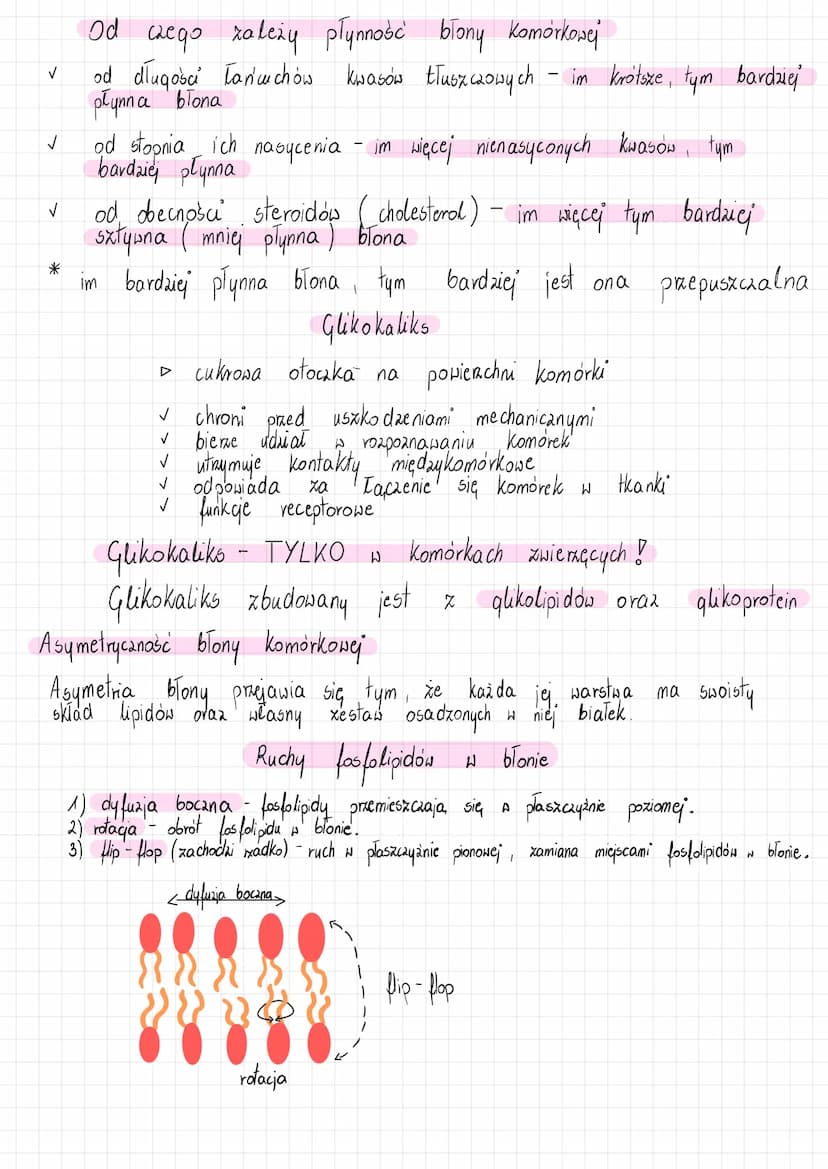 Od czego zależy płynność błony komórkowej
✓ od długości łańuchów kwasów tłuszczowych - im krótsze, tym bardziej
płynna błona
✓ od stopnia ich nasycenia - im więcej nienasyconych kwasów, tym
bardziej płynna
✓ od obecności steroidów (cholesterol) - im więcej tym bardziej
sztywna (mniej płynna) błona
* im bardziej płynna błona, tym bardziej jest ona przepuszczalna
Glikokaliks
▷ cukrowa otoczka na powierzchni komórki
✓ chroni przed uszkodzeniami mechanicznymi
✓ bierze udział w rozpoznawaniu komórek
✓ utrzymuje kontakty międzykomórkowe
✓ odpowiada za łączenie się komórek w tkanki
✓ funkcje receptorowe
Glikokaliks - TYLKO w komórkach zwierzęcych!
Glikokaliks zbudowany jest z glikolipidów oraz glikoprotein
Asymetryczność błony komórkowej
Asymetria błony przejawia się tym, że każda jej warstwa ma swoisty
skład lipidów oraz własny zestaw osadzonych w niej białek.
Ruchy fosfolipidów w błonie
1) dyfuzja boczna - fosfolipidy przemieszczają się w płaszczyźnie poziomej.
2) rotacja - obrót fosfolipidu w błonie.
3) flip-flop (zachodzi rzadko) - ruch w płaszczyźnie pionowej, zamiana miejscami fosfolipidów w błonie.
dyfuzja boczna
flip-flop
rotacja